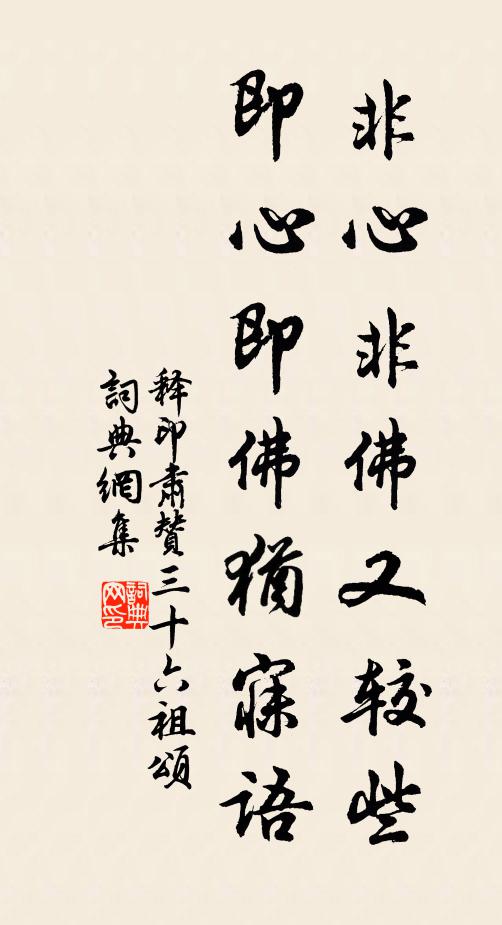 非心非佛又较些
即心即佛犹寐语
释印肃赞三十六祖颂
詞典網集
詞典网印